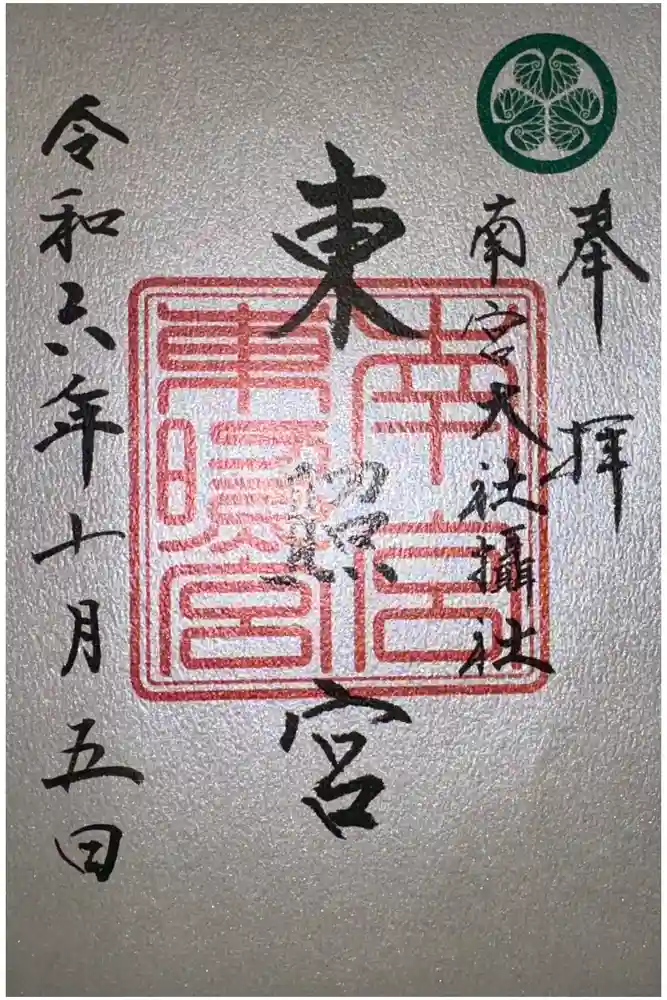 奉拝
南宮大社攝社
東照宮
南宮
東照宮
令和六年十月五日